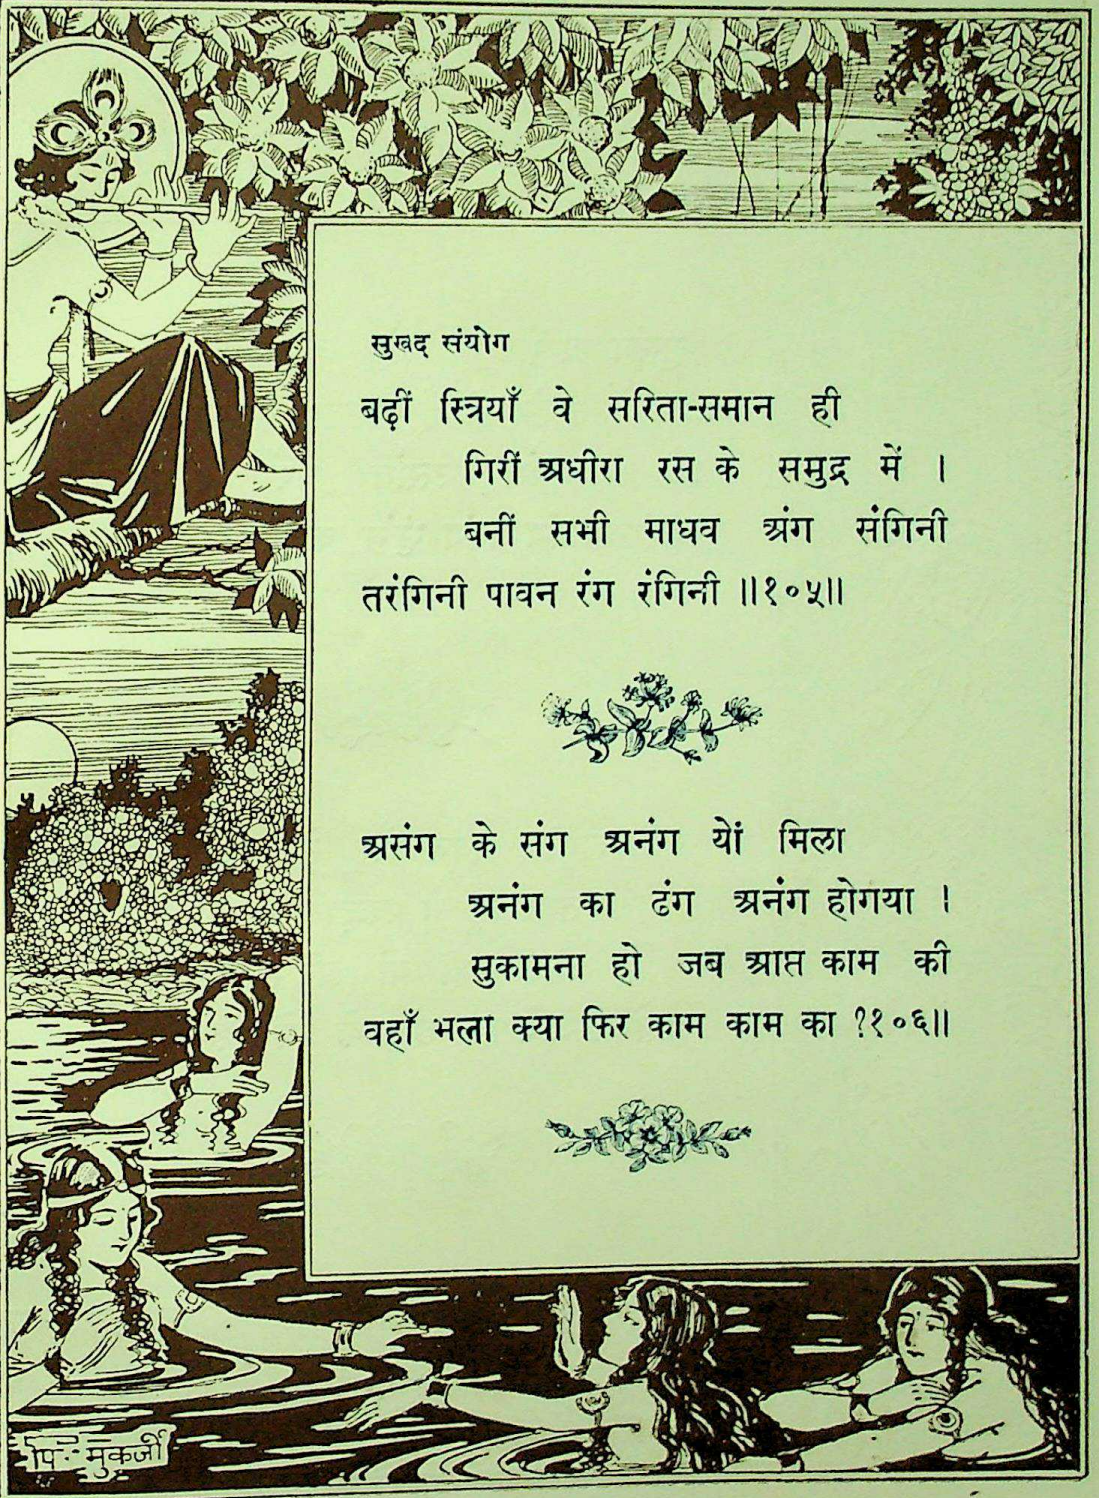 सुखद संयोग
बढ़ीं स्त्रियाँ वे सरिता-समान ही
गिरीं अधीरा रस के समुद्र में ।
बनीं सभी माधव अंग संगिनी
तरंगिनी पावन रंग रंगिनी ॥१०५॥
असंग के संग अनंग यों मिला
अनंग का ढंग अनंग होगया ।
सुकामना हो जब आप्त काम की
वहाँ भला क्या फिर काम काम का ?१०६॥
पि. मुकर्जी